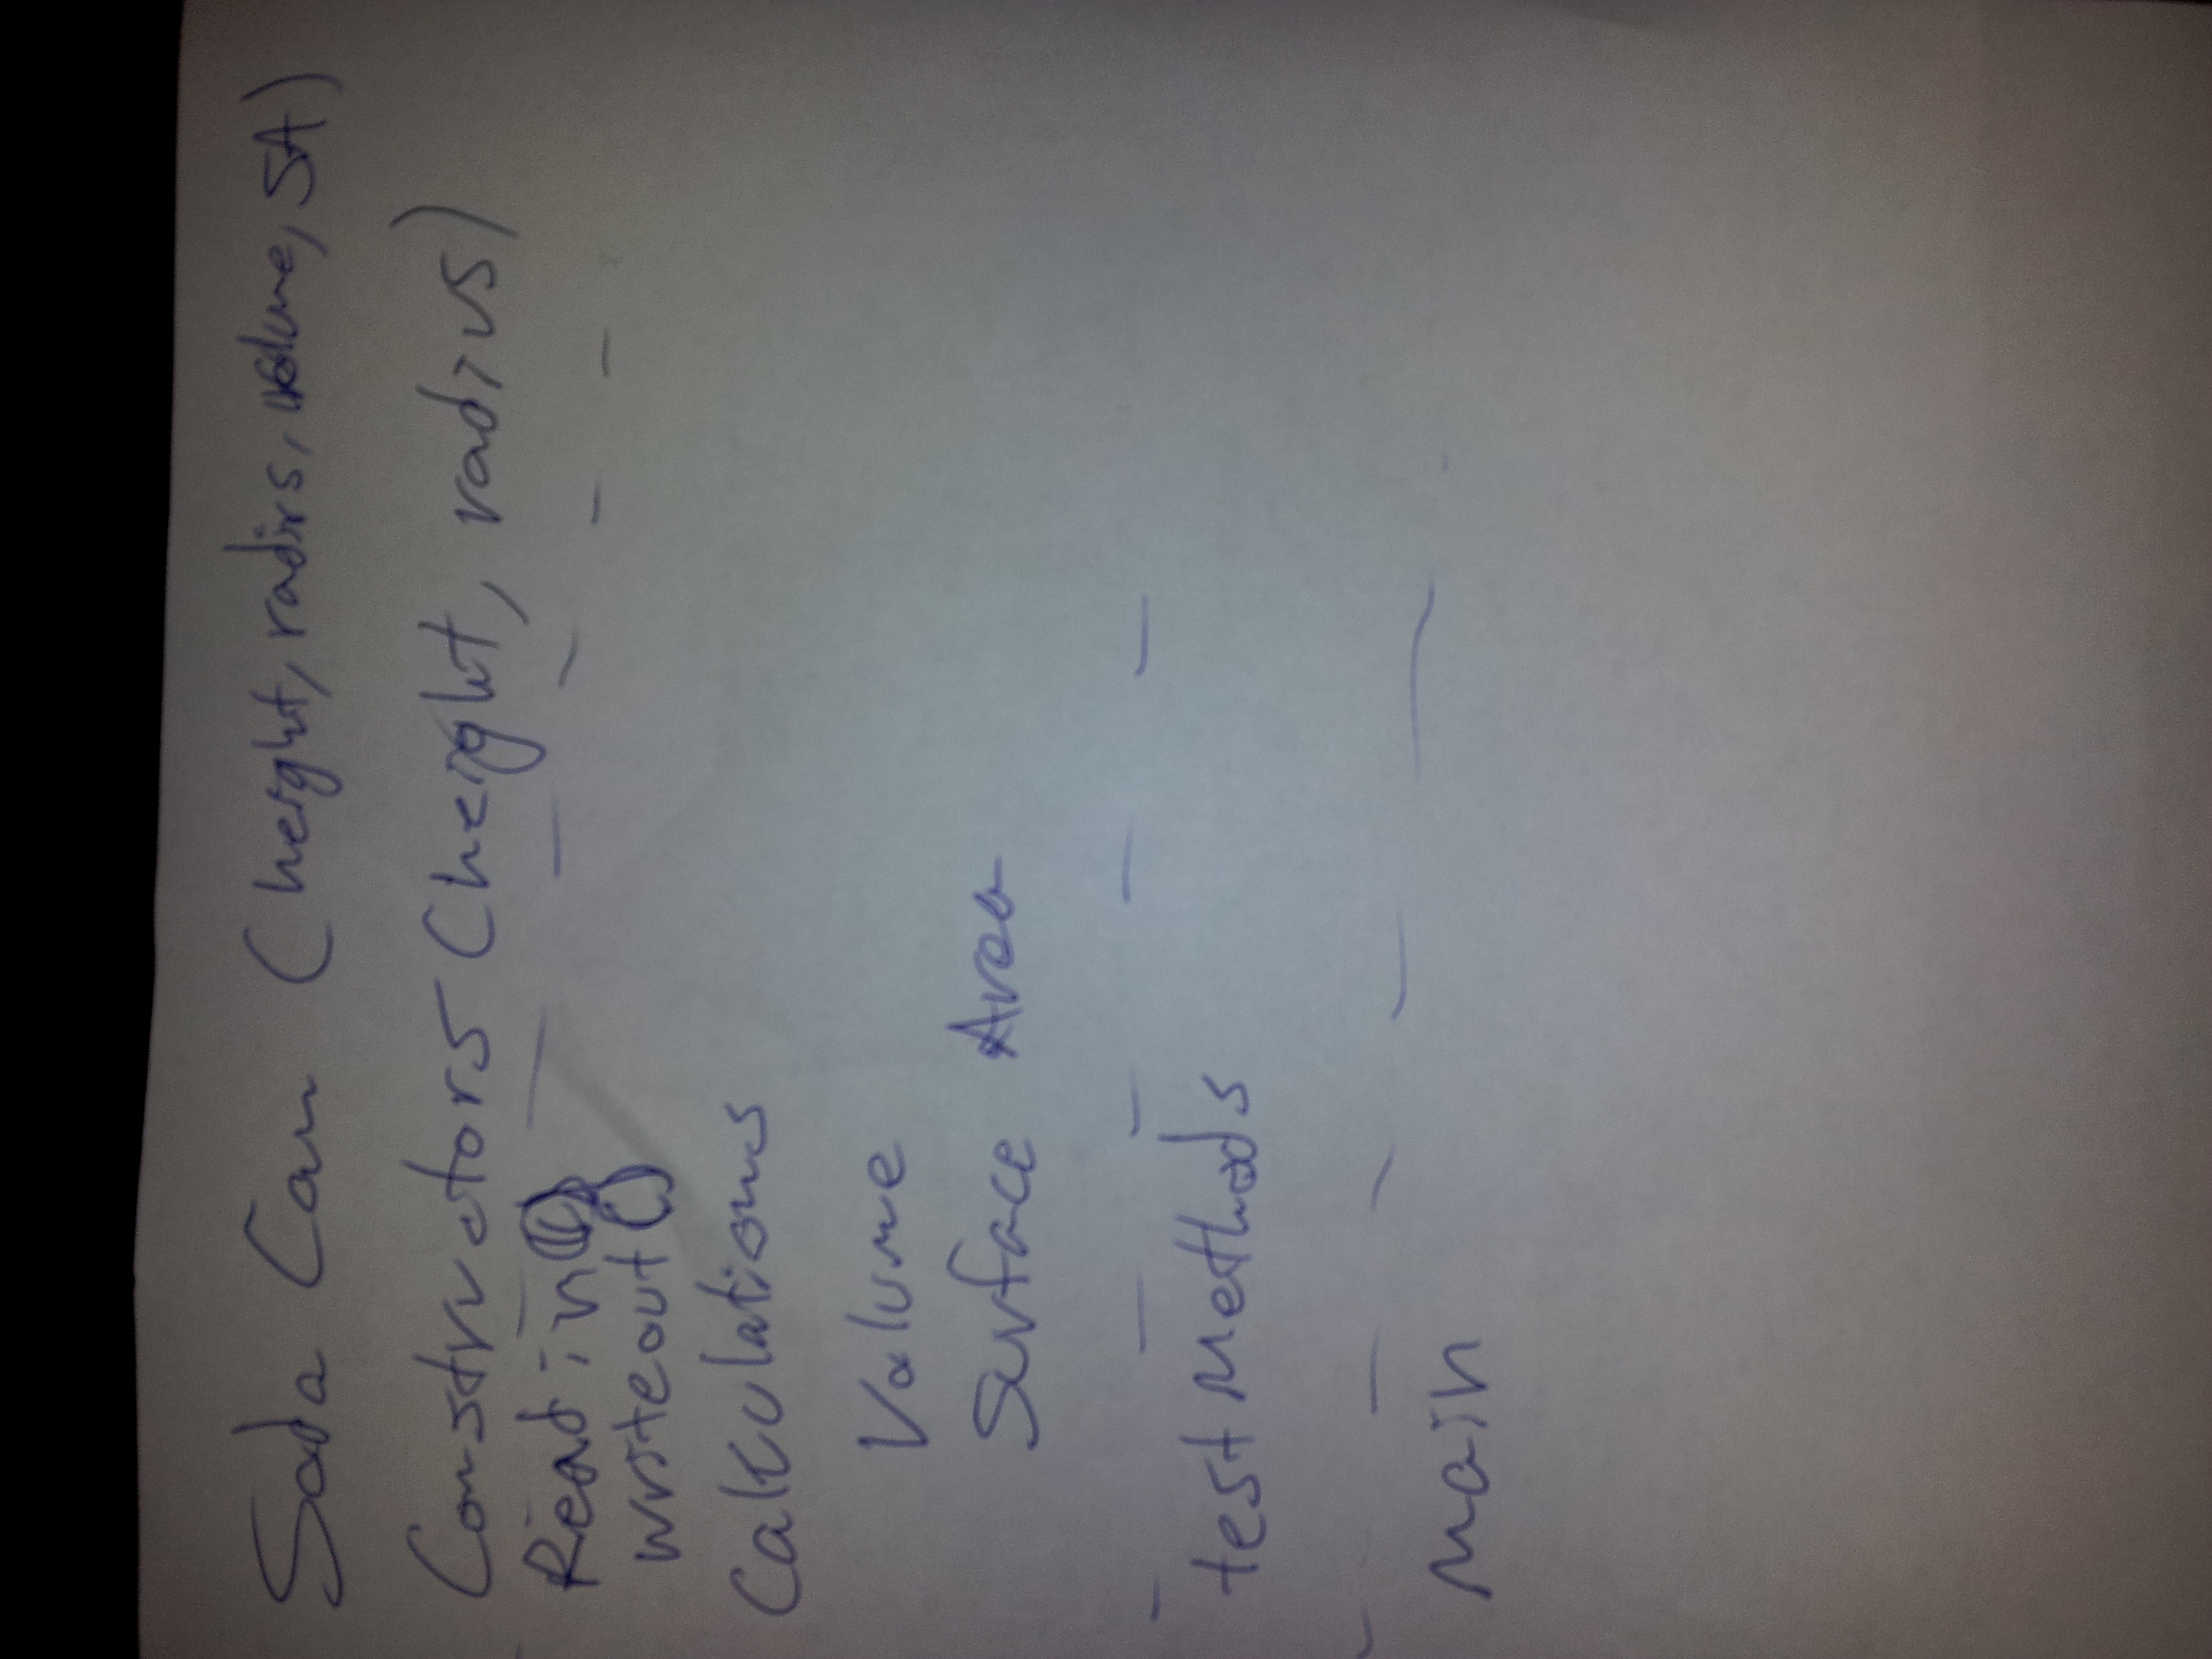 Soda Can (height, radius, volume, SA)
Constructors (height, radius)
Read in()
writeout()
Calculations
Volume
Surface Area
test Methods
Main